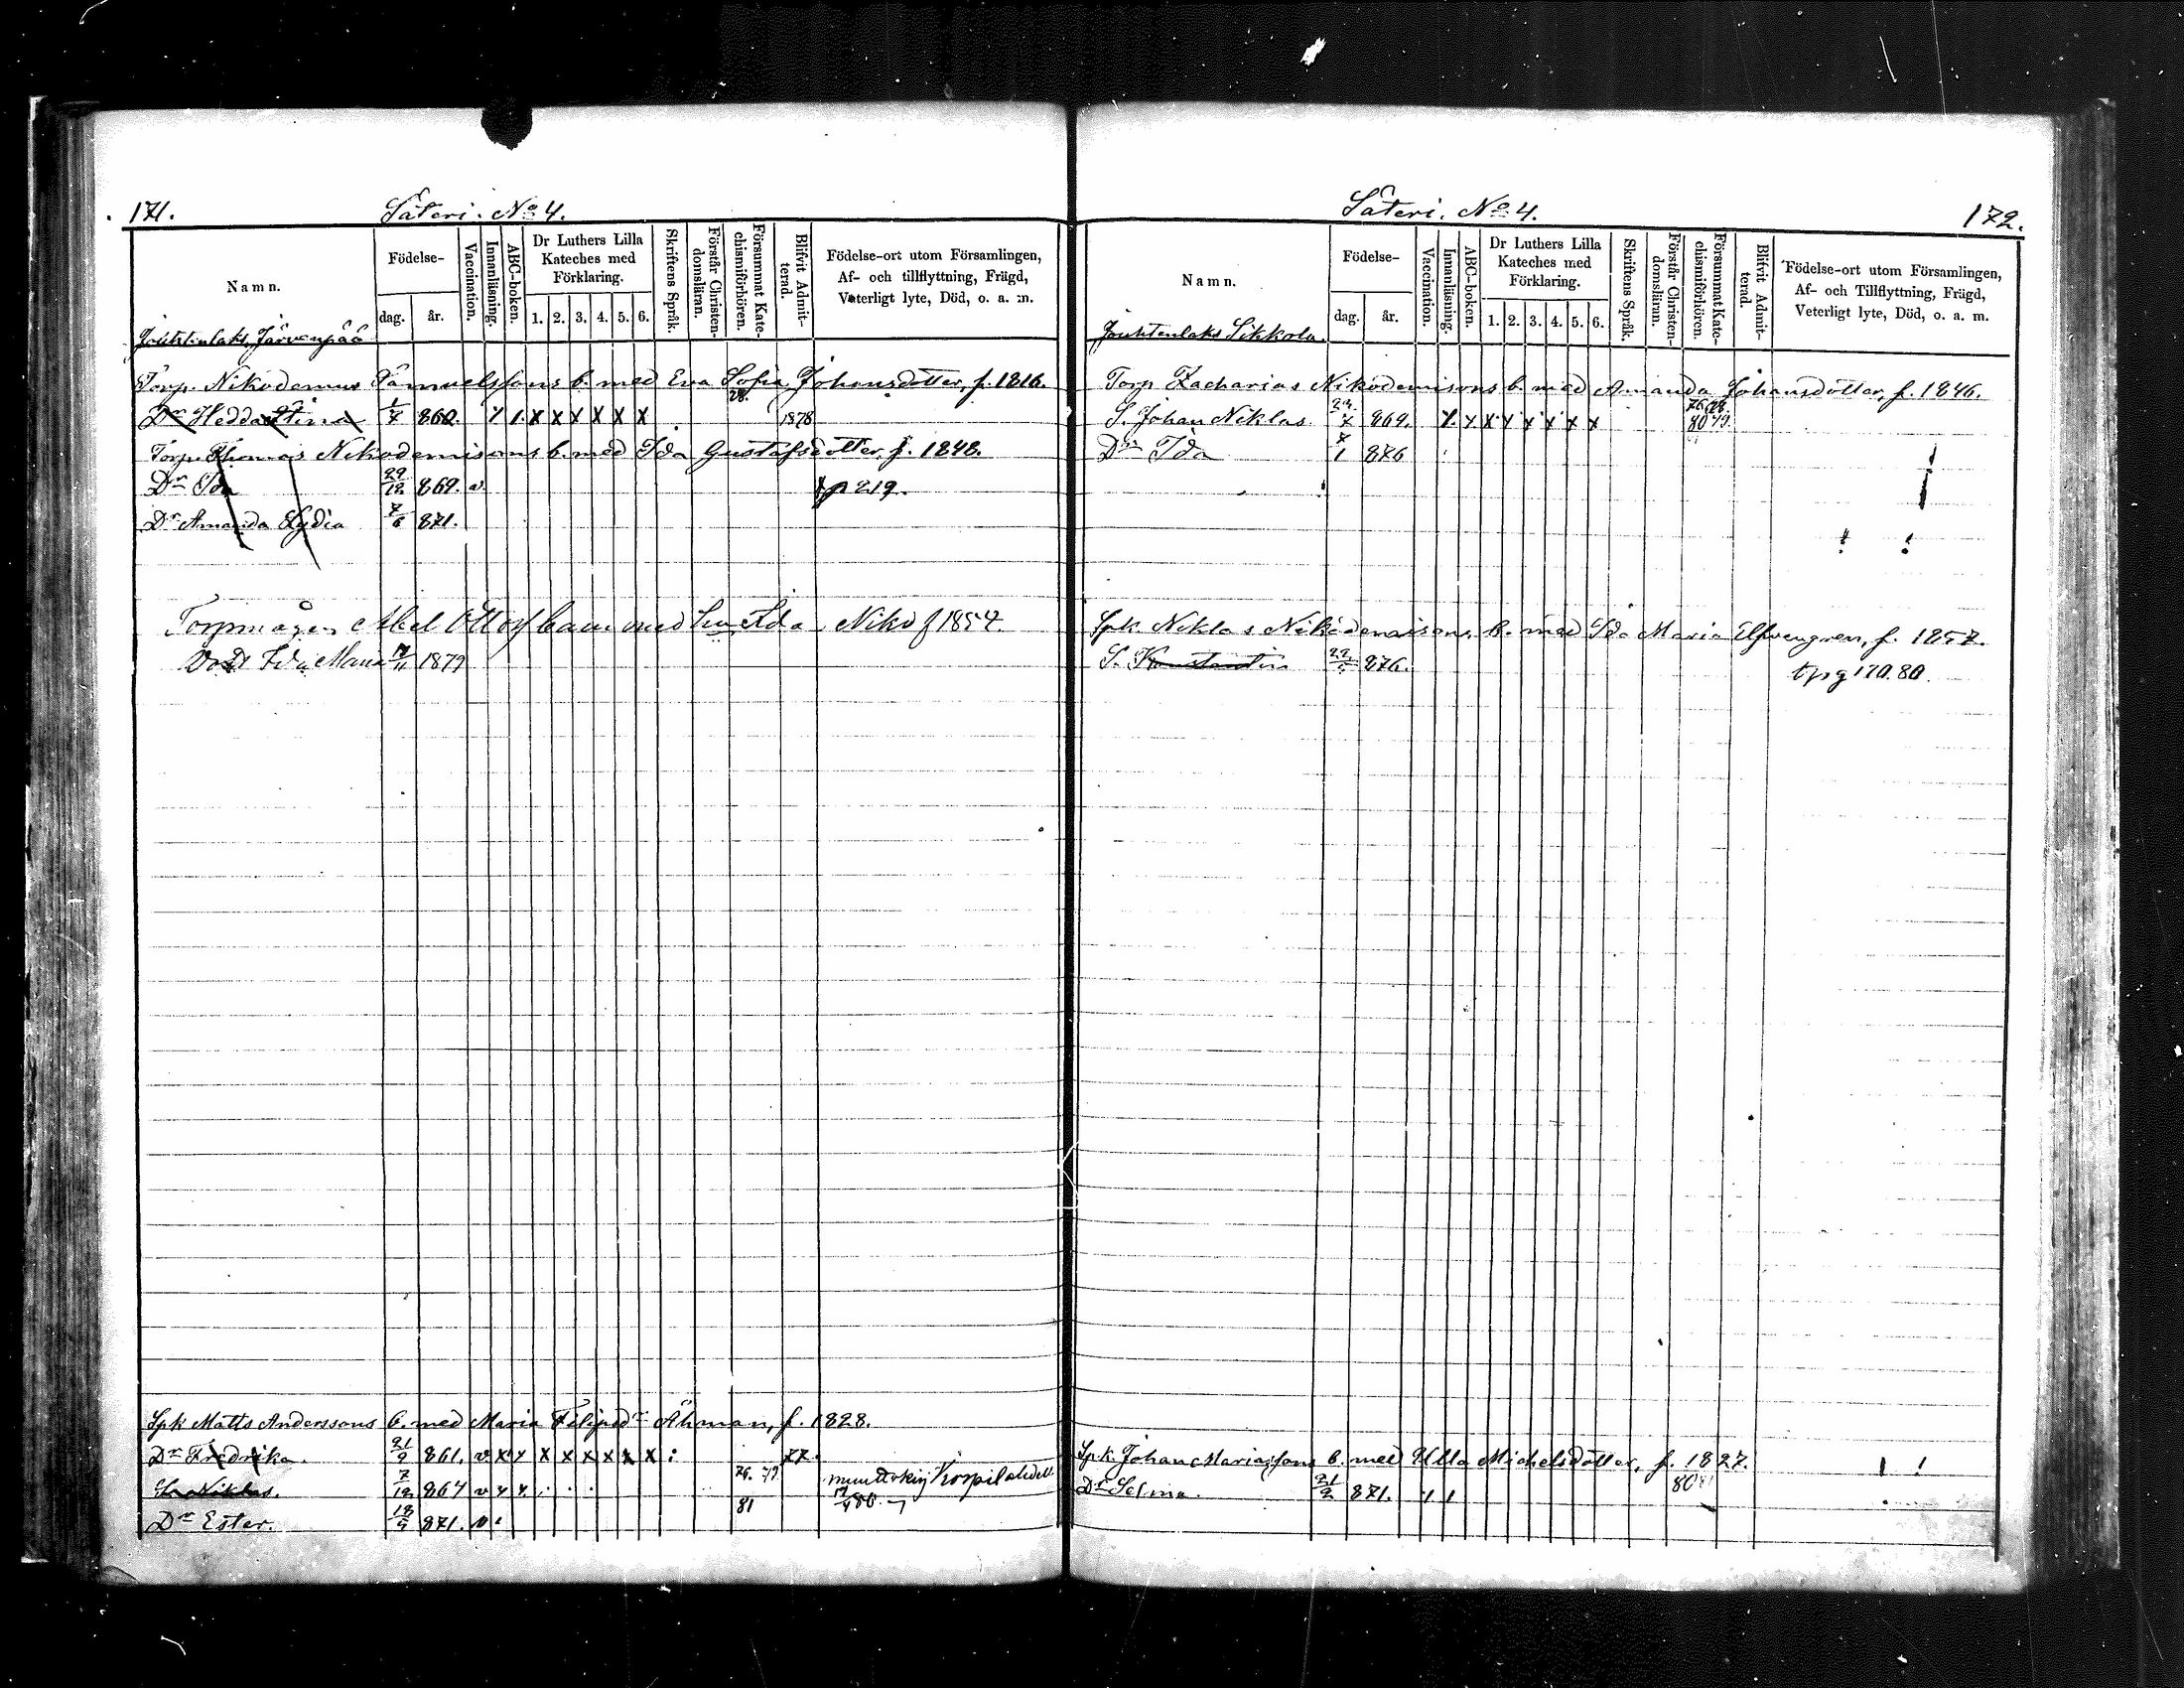 171. Säteri. No 4.
Namn. Födelse- dag. år. Vaccination. Innanläsning. ABC-boken. Dr Luthers Lilla Kateches med Förklaring. 1. 2. 3. 4. 5. 6. Skriftens Språk. Förstår Christendomsläran. Försummat Katechismiförhören. Blifvit Admitterad. Födelse-ort utom Församlingen, Af- och tillflyttning, Frägd, Veterligt lyte, Död, o. a. m.
Jouhtenlaks, Järvenpää
Torp. Nikodemus Samuelssons b. med Eva Sofia Johansdotter, f. 1816.
Dr Hedda Stina 1/7 860. x x x x x x 78. 1878
Torp. Thomas Nikodemisons b. med Ida Gustafsdotter, f. 1848.
Dr Ida 29/12 869. v. p 219.
Dr Amanda Lydia 7/6 871.
Torpmågen Abel Ottos barn med hu Ida Niko f 1854.
Dr Ida Maria 1879
Spk Matts Anderssons b. med Maria Filipsdr Åhman, f. 1828.
Dr Fredrika. 21/9 861. v x x x x x x x x
S. Niklas. 7/12 864 v x x 76. 79 muuttokirj Korpilahdell
81 80
Dr Ester. 18/9 871. v
Säteri. No 4. 172.
Namn. Födelse- dag. år. Vaccination. Innanläsning. ABC-boken. Dr Luthers Lilla Kateches med Förklaring. 1. 2. 3. 4. 5. 6. Skriftens Språk. Förstår Christendomsläran. Försummat Katechismiförhören. Blifvit Admitterad. Födelse-ort utom Församlingen, Af- och Tillflyttning, Frägd, Veterligt lyte, Död, o. a. m.
Jouhtenlaks Sikkola.
Torp Zacharias Nikodemisons b. med Amanda Johansdotter, f. 1846.
S. Johan Niklas 869. x x x x x x x x 76 78. 80 79.
Dr Ida 876
Spk. Niklas Nikodemisons b. med Ida Maria Elfvengren, f. 1857.
S. Konstantin 876. tpg 170. 80.
Spk. Johan Mariassons b. med Ulla Michelsdotter, f. 1827.
Dr Selma. 21/2 871. 80